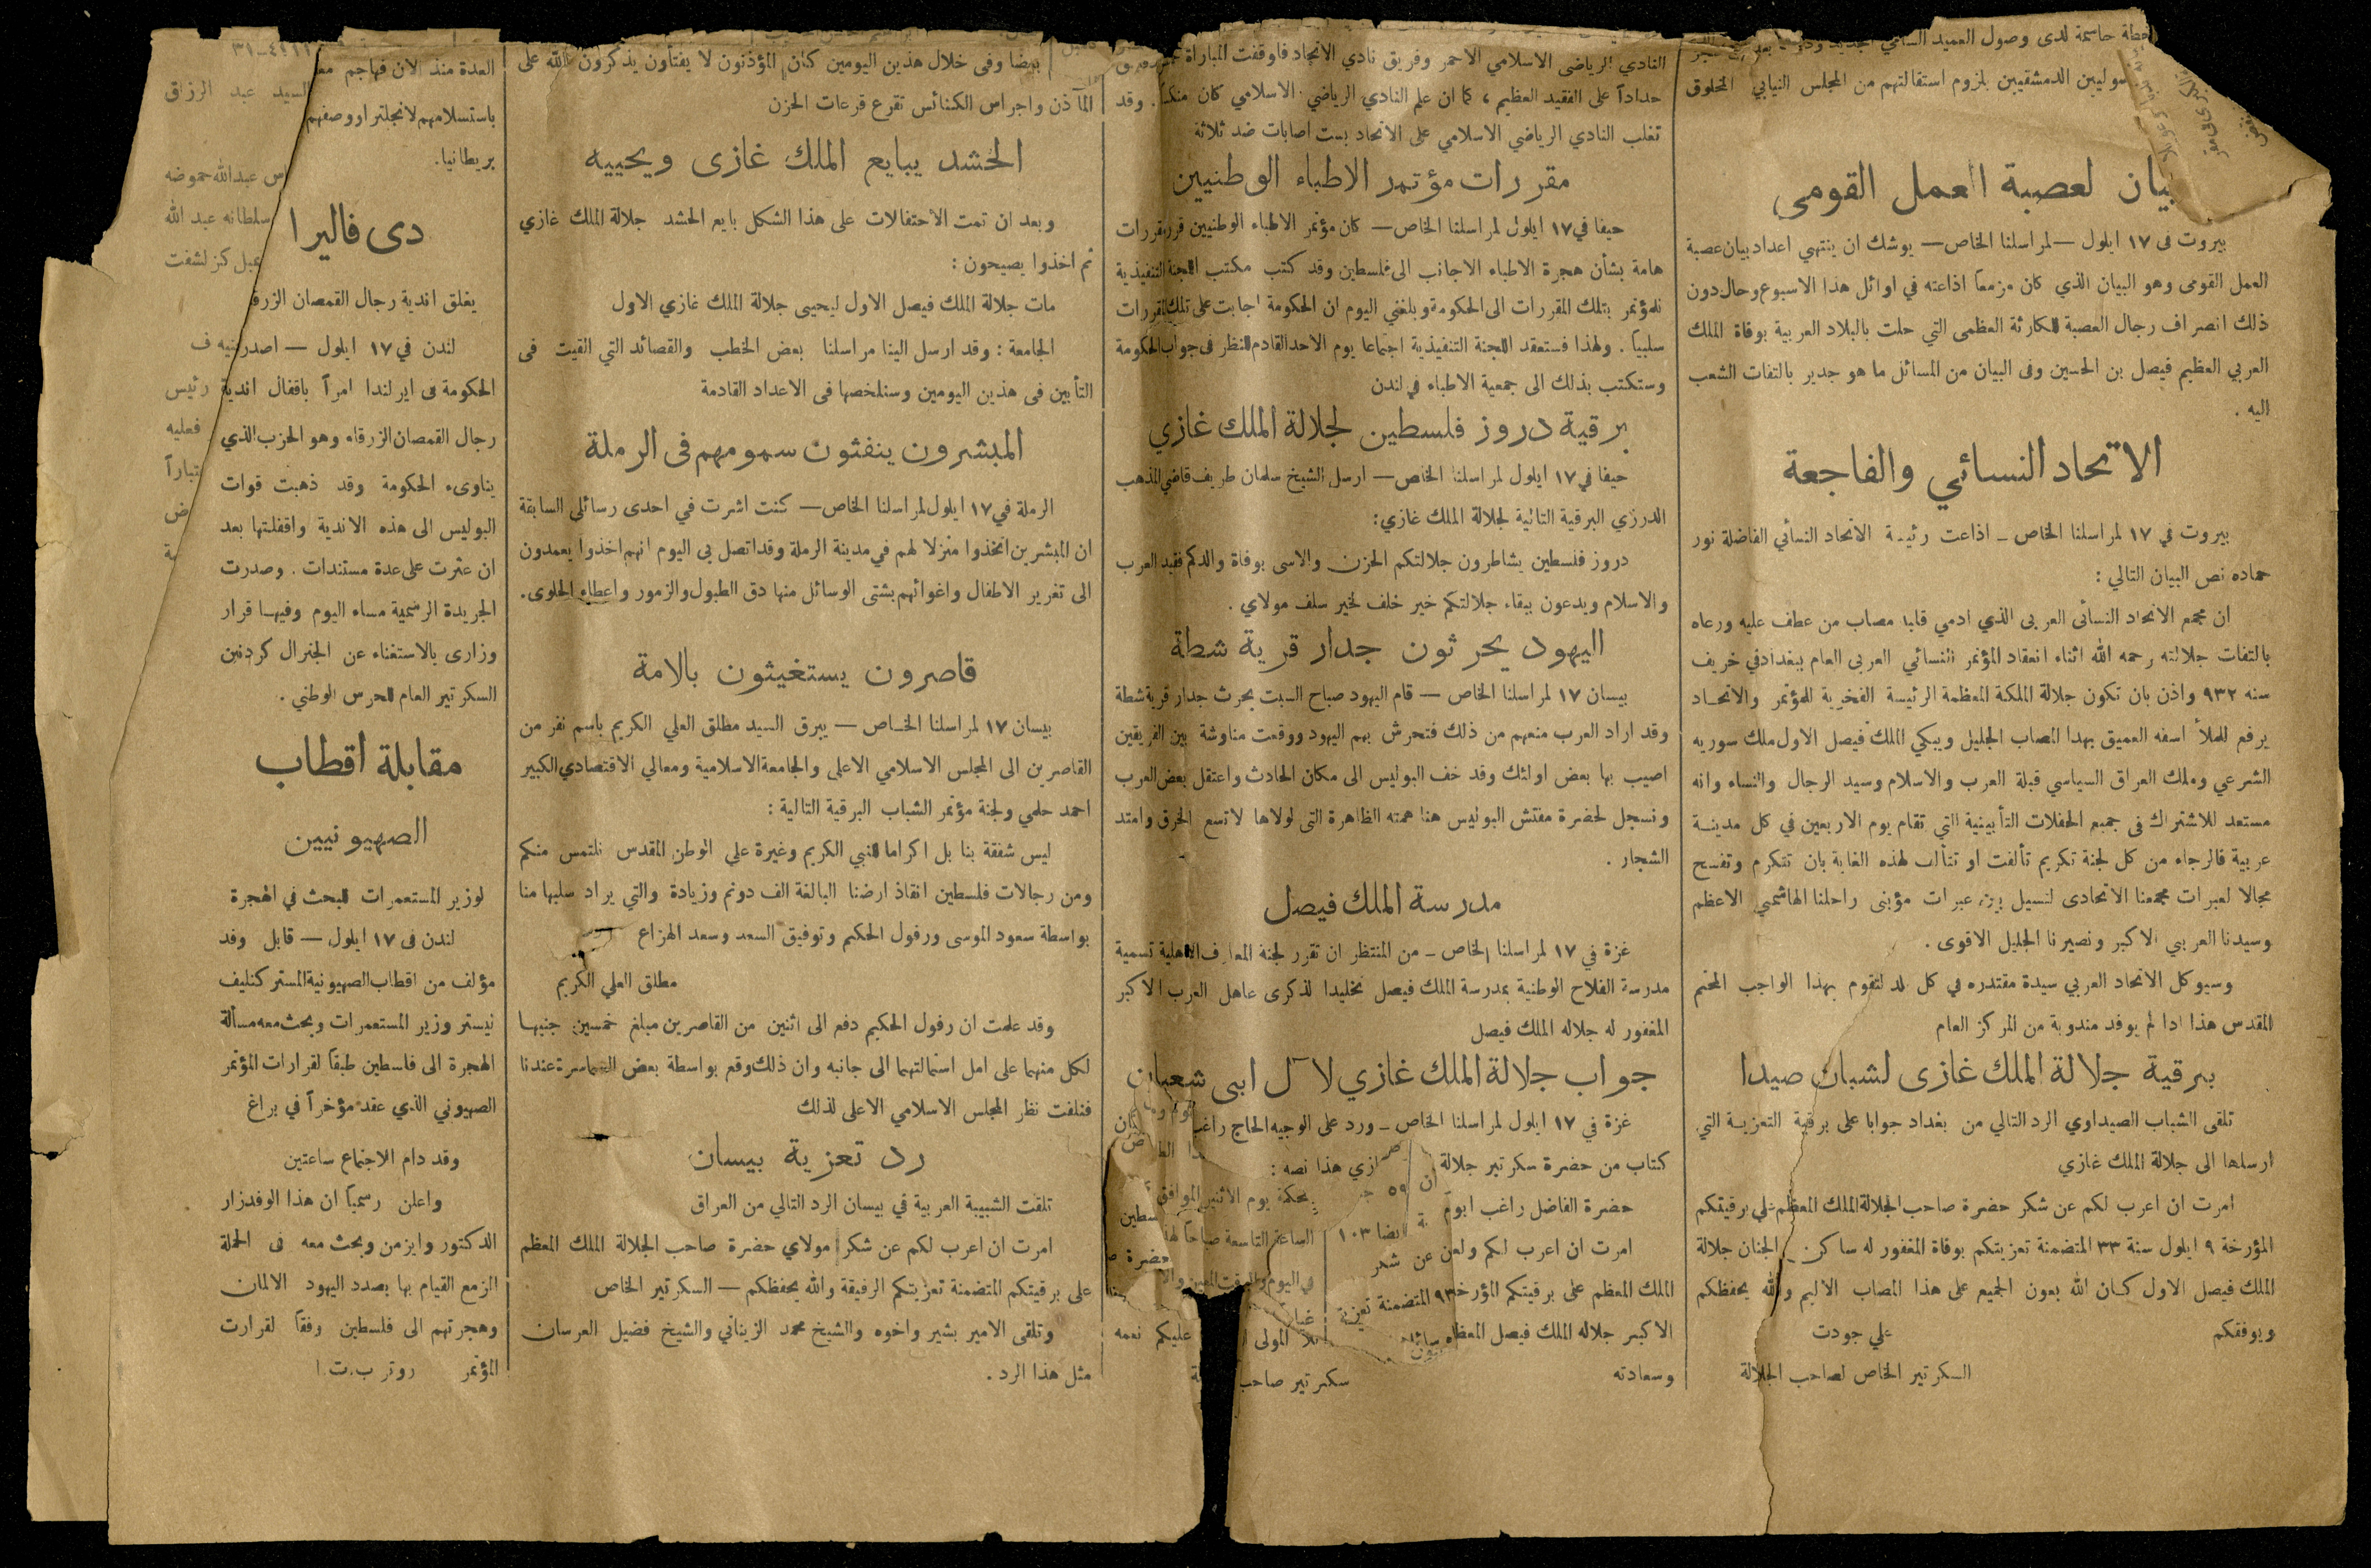 خطة حاسمة لدى وصول العميد السامي الجديد
الدمشقيين بلزوم استقالتهم من المجلس النيابي المخلوق
بيان لعصبة العمل القومي
بيروت فى ١٧ ايلول — لمراسلنا الخاص — يوشك ان ينتهي اعداد بيان عصبة
العمل القومى وهو البيان الذي كان مزمعاً اذاعته في اوائل هذا الاسبوع وحال دون
ذلك انصراف رجال العصبة للكارثة العظمى التي حلت بالبلاد العربية بوفاة الملك
العربي العظيم فيصل بن الحسين وفى البيان من المسائل ما هو جدير بالتفات الشعب
اليه .
الاتحاد النسائي والفاجعة
بيروت في ١٧ لمراسلنا الخاص ـ اذاعت رئيسة الاتحاد النسائي الفاضلة نور
حماده نص البيان التالي :
ان مجمع الاتحاد النسائى العربى الذي ادمي قلبه مصاب من عطف عليه ورعاه
بالتفات جلالته رحمه الله اثناء انعقاد المؤتمر النسائي العربى العام ببغداد في خريف
سنه ٩٣٢ واذن بان تكون جلالة الملكة المعظمة الرئيسة الفخرية للمؤتمر والاتحاد
يرفع للملأ اسفه العميق بهذا المصاب الجليل ويبكي الملك فيصل الاول ملك سوريه
الشرعي وملك العراق السياسي قبلة العرب والاسلام وسيد الرجال والنساء وانه
مستعد للاشتراك فى جميع الحفلات التأبينية التي تقام يوم الاربعين في كل مدينة
عربية فالرجاء من كل لجنة تكريم تألفت او تتألف لهذه الغاية بان تتكرم وتفسح
مجالا لعبرات مجمعنا الاتحادى لتسيل بين عبرات مؤبنى راحلنا الهاشمي الاعظم
وسيدنا العربي الاكبر ونصيرنا الجليل الاقوى .
وسيوكل الاتحاد العربي سيدة مقتدره في كل بلد لتقوم بهذا الواجب المحتم
المقدس هذا اذا لم يوفد مندوبة من المركز العام
برقية جلالة الملك غازى لشبان صيدا
تلقى الشباب الصيداوي الرد التالي من بغداد جوابا على برقية التعزية التي
ارسلها الى جلالة الملك غازي
امرت ان اعرب لكم عن شكر حضرة صاحب الجلالة الملك المعظم على برقيتكم
المؤرخة ٩ ايلول سنة ٣٣ المتضمنة تعزيتكم بوفاة المغفور له ساكن الجنان جلالة
الملك فيصل الاول كان الله بعون الجميع على هذا المصاب الاليم والله يحفظكم
ويوفقكم علي جودت
السكرتير الخاص لصاحب الجلالة
النادي الرياضى الاسلامي الاحمر وفريق نادي الاتحاد فاوقفت المباراة
حداداً على الفقيد العظيم ، كما ان علم النادي الرياضي الاسلامي كان منكساً . وقد
تغلب النادي الرياضي الاسلامي على الاتحاد بست اصابات ضد ثلاثة
مقررات مؤتمر الاطباء الوطنيين
حيفا في ١٧ ايلول لمراسلنا الخاص — كان مؤتمر الاطباء الوطنيين قرر مقررات
هامة بشأن هجرة الاطباء الاجانب الى فلسطين وقد كتب مكتب اللجنة التنفيذية
للمؤتمر بتلك المقررات الى الحكومة وبلغني اليوم ان الحكومة اجابت على تلك المقررات
سلبياً . ولهذا فستعقد اللجنة التنفيذية اجتماعا يوم الاحد القادم للنظر فى جواب الحكومة
وستكتب بذلك الى جمعية الاطباء في لندن
برقية دروز فلسطين لجلالة الملك غازي
حيفا في ١٧ ايلول لمراسلنا الخاص — ارسل الشيخ سلمان طريف قاضي المذهب
الدرزي البرقية التالية لجلالة الملك غازي :
دروز فلسطين يشاطرون جلالتكم الحزن والاسى بوفاة والدكم فقيد العرب
والاسلام ويدعون ببقاء جلالتكم خير خلف لخير سلف مولاي .
اليهود يحرثون جدار قرية شطة
بيسان ١٧ لمراسلنا الخاص — قام اليهود صباح السبت بحرث جدار قرية شطة
وقد اراد العرب منعهم من ذلك فتحرش بهم اليهود ووقعت مناوشة بين الفريقين
اصيب بها بعض اولئك وقد خف البوليس الى مكان الحادث واعتقل بعض العرب
ونسجل لحضرة مفتش البوليس هنا همته الظاهرة التى لولاها لاتسع الخرق وامتد
الشجار .
مدرسة الملك فيصل
غزة في ١٧ لمراسلنا الخاص ـ من المنتظر ان تقرر لجنة المعارف المحلية تسمية
مدرسة الفلاح الوطنية بمدرسة الملك فيصل تخليدا لذكرى عاهل العرب الاكبر
المغفور له جلاله الملك فيصل
جواب جلالة الملك غازي لآل ابى شعبان
غزة في ١٧ ايلول لمراسلنا الخاص ـ ورد على الوجيه الحاج راغب
كتاب من حضرة سكرتير جلالة هذا نصه :
حضرة الفاضل راغب ابو
امرت ان اعرب لكم عن شكر
الملك المعظم على برقيتكم المؤرخة المتضمنة تعزية
الاكبر جلاله الملك فيصل المعظم المولى عليكم نعمه
وسعادته سكرتير صاحب
ايضا وفى خلال هذين اليومين كان المؤذنون لا يفتأون يذكرون الله على
المآذن واجراس الكنائس تقرع قرعات الحزن
الحشد يبايع الملك غازى ويحييه
وبعد ان تمت الاحتفالات على هذا الشكل بايع الحشد جلالة الملك غازي
ثم اخذوا يصيحون :
مات جلالة الملك فيصل الاول ليحيى جلالة الملك غازي الاول
الجامعة : وقد ارسل الينا مراسلنا بعض الخطب والقصائد التي القيت فى
التأبين فى هذين اليومين وسنلخصها فى الاعداد القادمة
المبشرون ينفثون سمومهم فى الرملة
الرملة في ١٧ ايلول لمراسلنا الخاص — كنت اشرت في احدى رسائلى السابقة
ان المبشرين اتخذوا منزلا لهم في مدينة الرملة وقد اتصل بى اليوم انهم اخذوا يعمدون
الى تغرير الاطفال واغوائهم بشتى الوسائل منها دق الطبول والزمور واعطاء الحلوى .
قاصرون يستغيثون بالامة
بيسان ١٧ لمراسلنا الخاص — يبرق السيد مطلق العلي الكريم باسم نفر من
القاصرين الى المجلس الاسلامي الاعلى والجامعة الاسلامية ومعالي الاقتصادي الكبير
احمد حلمي ولجنة مؤتمر الشباب البرقية التالية :
ليس شفقة بنا بل اكراما للنبي الكريم وغيرة علي الوطن المقدس نلتمس منكم
ومن رجالات فلسطين انقاذ ارضنا البالغة الف دونم وزيادة والتي يراد سلبها منا
بواسطة سعود الموسى ورفول الحكيم وتوفيق السعد وسعد الهزاع
مطلق العلي الكريم
وقد علمت ان رفول الحكيم دفع الى اثنين من القاصرين مبلغ خمسين جنيها
لكل منهما على امل استمالتهما الى جانبه وان ذلك وقع بواسطة بعض السماسرة عندنا
فنلفت نظر المجلس الاسلامي الاعلى لذلك
رد تعزية بيسان
تلقت الشبيبة العربية في بيسان الرد التالي من العراق
امرت ان اعرب لكم عن شكر مولاي حضرة صاحب الجلالة الملك المعظم
على برقيتكم المتضمنة تعزيتكم الرفيقة والله يحفظكم — السكرتير الخاص
وتلقى الامير بشير واخوه والشيخ محمد الزيناتي والشيخ فضيل العرسان
مثل هذا الرد .
العدة منذ الان فهاجم
باستسلامهم لانجلترا ووصفهم
بريطانيا.
دى فاليرا
يغلق اندية رجال القمصان الزرق
لندن في ١٧ ايلول — اصدرت
الحكومة فى ايرلندا امرآ باقفال اندية
رجال القمصان الزرقاء وهو الحزب الذي
يناوىء الحكومة وقد ذهبت قوات
البوليس الى هذه الاندية واقفلتها بعد
ان عثرت على عدة مستندات . وصدرت
الجريدة الرسمية مساء اليوم وفيها قرار
وزارى بالاستغناء عن الجنرال كردنين
السكرتير العام للحرس الوطني .
مقابلة أقطاب
الصهيونيين
لوزير المستعمرات للبحث في الهجرة
لندن فى ١٧ ايلول — قابل وفد
مؤلف من اقطاب الصهيونية المستر كنليف
ليستر وزير المستعمرات وبحث معه مسألة
الهجرة الى فلسطين طبقاً لقرارات المؤتمر
الصهيوني الذي عقد مؤخراً في براغ
وقد دام الاجتماع ساعتين
واعلن رسمياً ان هذا الوفد زار
الدكتور وايزمن وبحث معه فى الحملة
المزمع القيام بها بصدد اليهود الالمان
وهجرتهم الى فلسطين وفقاً لقرارت
المؤتمر روتر ب.ت.ا
السيد عبد الرزاق
عبد الله حموضه
سلطانه عبد الله
رئيس
فعليه